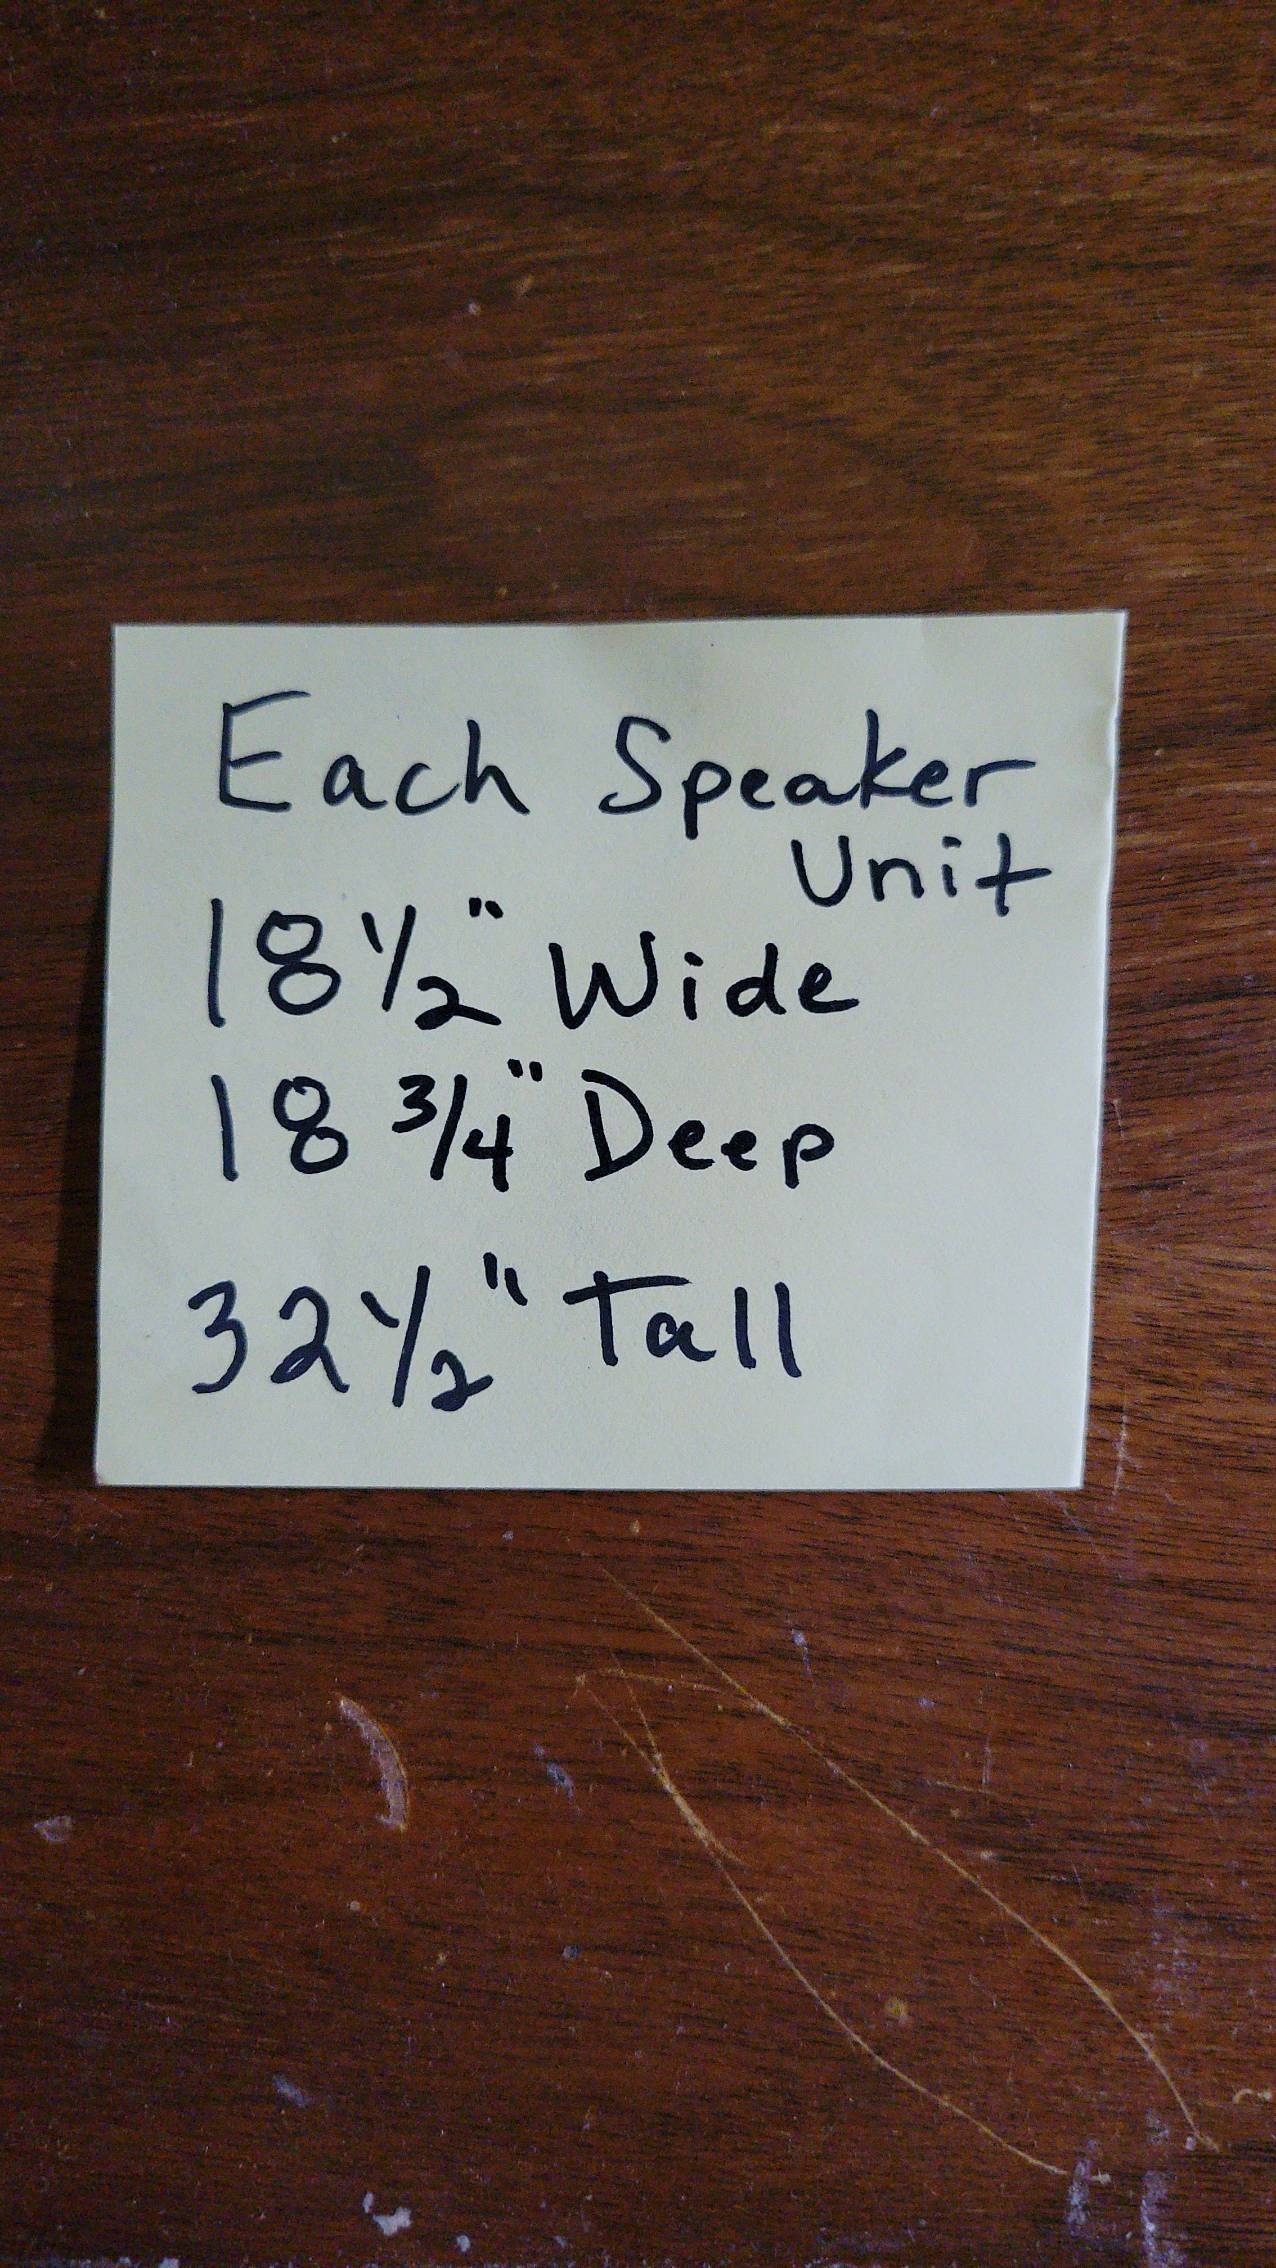 Each Speaker
Unit
18 1/2" Wide
18 3/4" Deep
32 1/2" Tall